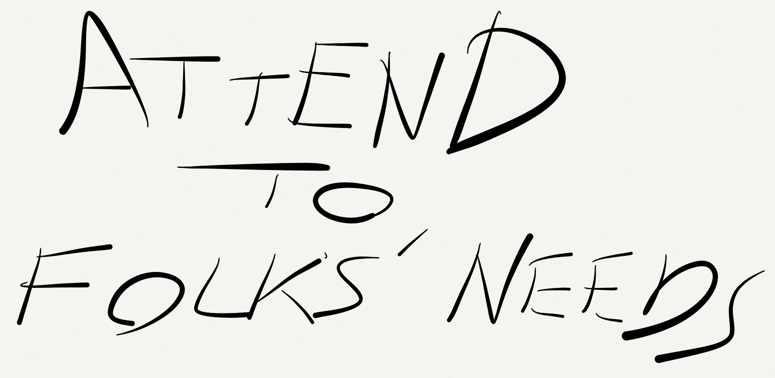 ATTEND
TO
FOLKS' NEEDS